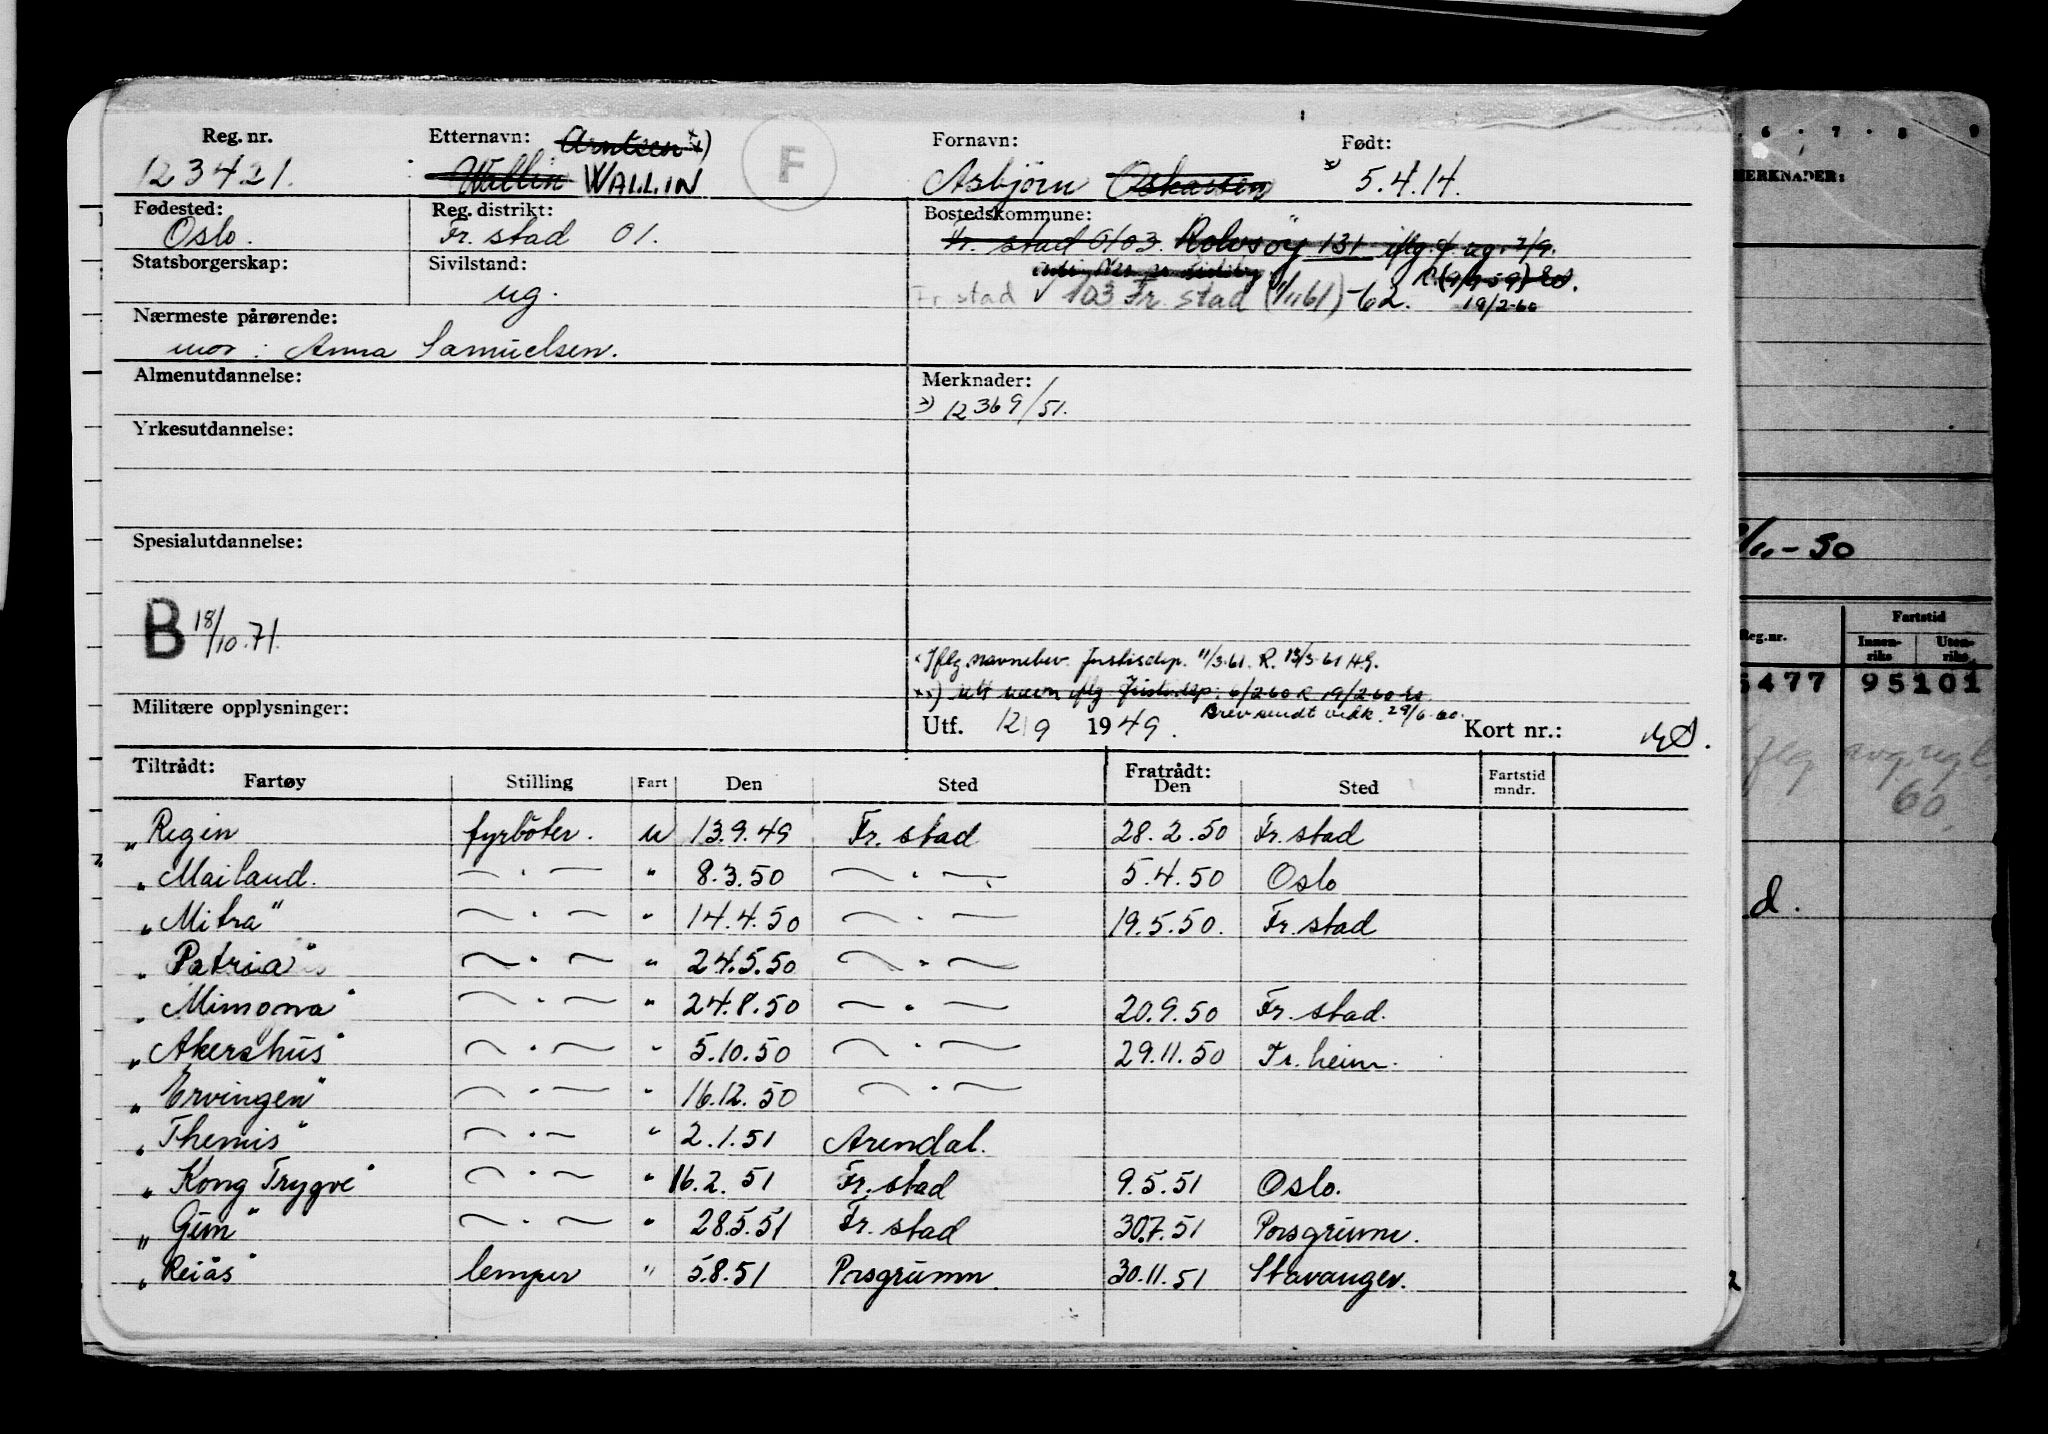 Reg. nr. Etternavn: Arntsen x) F Fornavn: Født:
123421. Wallin WALLIN Asbjörn Oskarsen x) 5.4.14.
Fødested: Reg. distrikt: Bostedskommune:
Oslo. Fr. stad 01. Fr. stad 0103. Rolvsöy 131 iflg. ag. 2/9.
Statsborgerskap: Sivilstand:
ug. Fr. stad 103 Fr. stad (1/1161) -62. 19/2-60
Nærmeste pårørende:
mor: Anna Samuelsen.
Almenutdannelse: Merknader:
x) 12369/51.
Yrkesutdannelse:
Spesialutdannelse:
B 18/10.71.
Iflg. navnebev. Justisdep. 11/3-61. R. 13/3-61 HG.
xx) navn iflg Justisdep. 6/2-60 R 19/2-60
Militære opplysninger: Brev sendt vedk. 29/6-60.
Utf. 12/9 1949. Kort nr.:
Tiltrådt: Fratrådt:
Fartøy Stilling Fart Den Sted Den Sted Fartstid mndr.
„Regin fyrböter. u 13.9.49 Fr. stad 28.2.50 Fr. stad
„Mailand. — . — " 8.3.50 — . — 5.4.50 Oslo
„Mitra" — . — " 14.4.50 — . — 19.5.50. Fr. stad
„Patria" — . — " 24.5.50 — . —
„Mimona" — . — " 24.8.50 — . — 20.9.50 Fr. stad.
„Akershus" — . — " 5.10.50 — . — 29.11.50 Tr. heim.
„Ervingen" — . — " 16.12.50 — . —
„Themis" — . — " 2.1.51 Arendal.
„Kong Trygve" — . — " 16.2.51 Fr. stad 9.5.51 Oslo.
„Gim" — . — " 28.5.51 Fr. stad 30.7.51 Porsgrunn.
„Reiås" lemper " 5.8.51 Porsgrunn 30.11.51 Stavanger.
6 7 8 9
MERKNADER:
/11-50
Reg.nr. Fartstid
Innen-riks Uten-riks
5477 95101
iflg avg.regl.
60.
d.
2